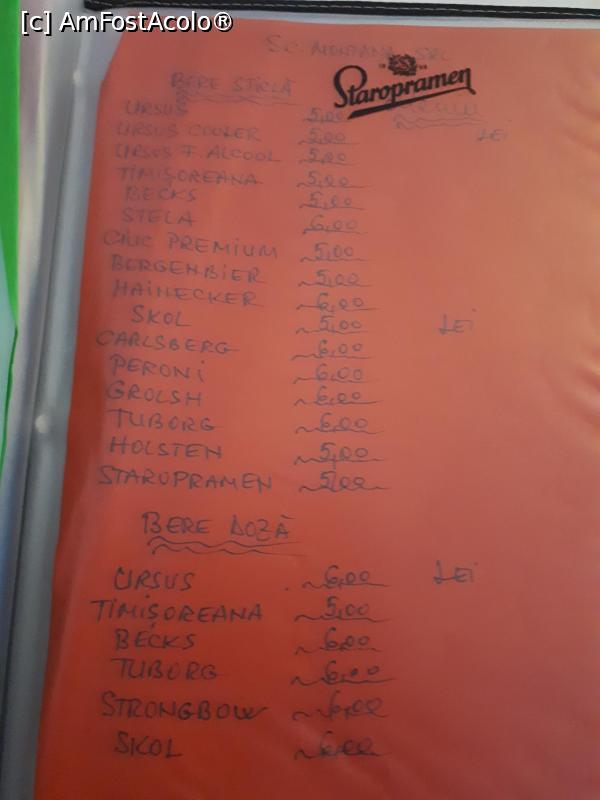 [c] AmFostAcolo®
SC. MONTANA SRL
Staropramen
BERE STICLĂ
URSUS 5,00
URSUS COOLER 5,00 LEI
URSUS F. ALCOOL 5,00
TIMIȘOREANA 5,00
BECKS 5,00
STELA 6,00
CIUC PREMIUM 5,00
BERGENBIER 5,00
HAINECKER 6,00
SKOL 5,00 LEI
CARLSBERG 6,00
PERONI 6,00
GROLSH 6,00
TUBORG 6,00
HOLSTEN 5,00
STAROPRAMEN 5,00
BERE DOZĂ
URSUS 6,00 LEI
TIMIȘOREANA 5,00
BECKS 6,00
TUBORG 6,00
STRONGBOW 6,00
SKOL 6,00